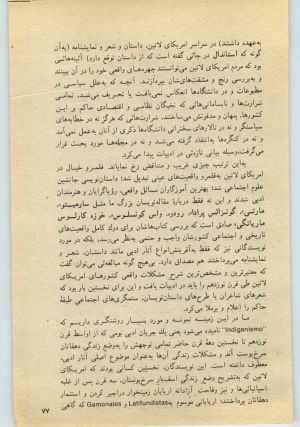 به‌عهده داشتند) در سراسر امریکای لاتین، داستان و شعر و نمایشنامه (به‌آن
گونه که استاندال در جائی گفته است که از داستان توقع دارد) آئینه‌هائی
بود که مردم امریکای لاتین می‌توانستند چهره‌های واقعی خود را در آن ببینند
و به‌بررسی رنج و مشقت‌های‌شان بپردازند. آنچه که به‌علل سیاسی در
مطبوعات و در دانشگاه‌ها انعکاس نمی‌یافت یا تحریف می‌شد، تمامی
شرارت‌ها و نابسامانی‌هائی که نخبگان نظامی و اقتصادی حاکم بر این
کشورها، پنهان و مدفونش می‌ساختند. شرارت‌هائی که هرگز نه در خطابه‌های
سیاستگر و نه در تالارهای سخنرانی دانشگاه‌ها ذکری از آنان به‌عمل نمی‌آمد
و نه در کنگره‌ها به‌انتقاد گرفته می‌شد و نه در مجله‌ها مورد بحث قرار
می‌گرفت، وسیله بیانی تازه‌ئی در ادبیات پیدا می‌کرد.
به‌این ترتیب چیزی غریب و متناقض رخ نمایاند. قلمرو خیال در
امریکای لاتین به‌قلمرو واقعیت‌های عینی تبدیل شد؛ داستان‌نویسی جانشین
علوم اجتماعی شد؛ بهترین آموزگاران مسائل واقعی، رؤیاگرایان و هنرمندان
ادبی شدند و این نه فقط دربارهٔ مقاله‌نویسان بزرگ ما مثل سارمیینتو،
مارتی، گونزالس پرادا، رودو، واس کونسلوس، خوزه کارلوس
ماریاتگی؛ صادق است که بررسی کتاب‌هاشان برای درك کامل واقعیت‌های
تاریخی و اجتماعی کشورشان واجب و حتمی به‌نظر می‌رسد، بلکه در مورد
نویسندگانی نیز که فقط به‌آفرینش‌انواع آثار ادبی مانند داستان، شعر و
نمایشنامه می‌پرداختند هم مصداق دارد. بی‌هیچ گونه مبالغه‌ئی می‌توان گفت
که معتبرترین و مشخص‌ترین شرح مشکلات واقعی کشورهـای امریکای
لاتین طی قرن نوزدهم را باید در ادبیات یافت و این برای نخستین بار بود که
شعرهای شاعران یا طرح‌های داستان‌نویسان، ستمگری‌های اجتماعی طبقهٔ
حاکم را اعلام و برملا می‌کرد.
ما در این زمینه نمونه و مورد بسیار روشنگری داریـم که
"Indigenismo" نامیده می‌شود یعنی یك جریان ادبی بومی که از اواسط قرن
نوزدهم تا نخستین دههٔ قرن حاضر تمامی توجهش را به‌وضع زندگی دهقانان
سرخ‌پوست آند و مشکلات زندگی آن‌ها به‌عنوان موضوع اصلی آثار ادبی،
معطوف داشته است. این نویسندگان، نخستین کسانی بودند که امریکای
لاتین که به‌تشریح وضع زندگی اسف‌بار سرخ‌پوستان، سه قرن پس از غلبهٔ
اسپانیائی‌ها و نیز وقاحت آزادانهٔ اربابان زمیندار دراجیر کردن و استثمار
دهقانان پرداختند؛ اربابانی موسوم به Latifundistas و Gamonales که گاهی
۷۷